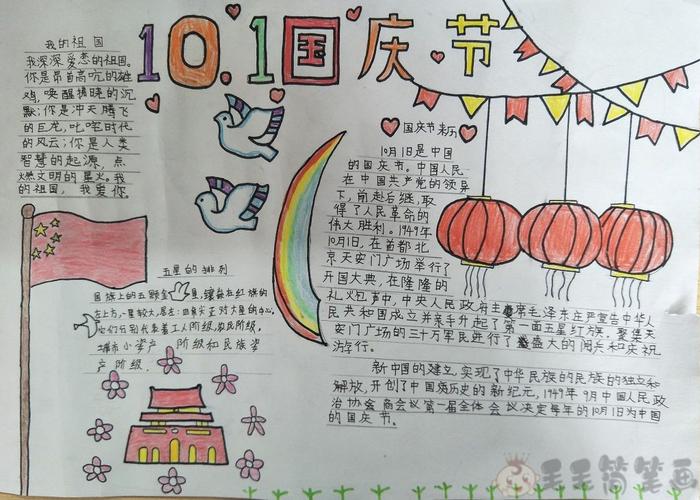 10.1国庆节
我的祖国
我深深爱恋的祖国。
你是昂首高吭的雄
鸡，唤醒拂晓的沉
默；你是冲天腾飞
的巨龙，叱咤时代
的风云；你是人类
智慧的起源，点
燃文明的星火。我
的祖国，我爱你。
五星的排列
国旗上的五颗金 星，镶嵌在红旗的
左上方，一星较大，居左；四角尖正对大星的中心，
它们分别代表着工人阶级，农民阶级，
城市小资产阶级和民族资
产阶级.
国庆节来历
10月1日是中国
的国庆节。中国人民
在中国共产党的领导
下，前赴后继，取
得了人民革命的
伟大胜利。1949年
10月1日，在首都北
京天安门广场举行了
开国大典，在隆隆的
礼炮声中，中央人民政府主席毛泽东庄严宣告中华人
民共和国成立并亲手升起了第一面五星红旗。聚集天
安门广场的三十万军民进行了盛大的阅兵和庆祝
游行。
新中国的建立，实现了中华民族的民族的独立和
解放，开创了中国病历史的新纪元，1949年9月中国人民政
治协会商会议第一届全体会议决定每年的10月1日为中国
的国庆节。
毛毛简笔画